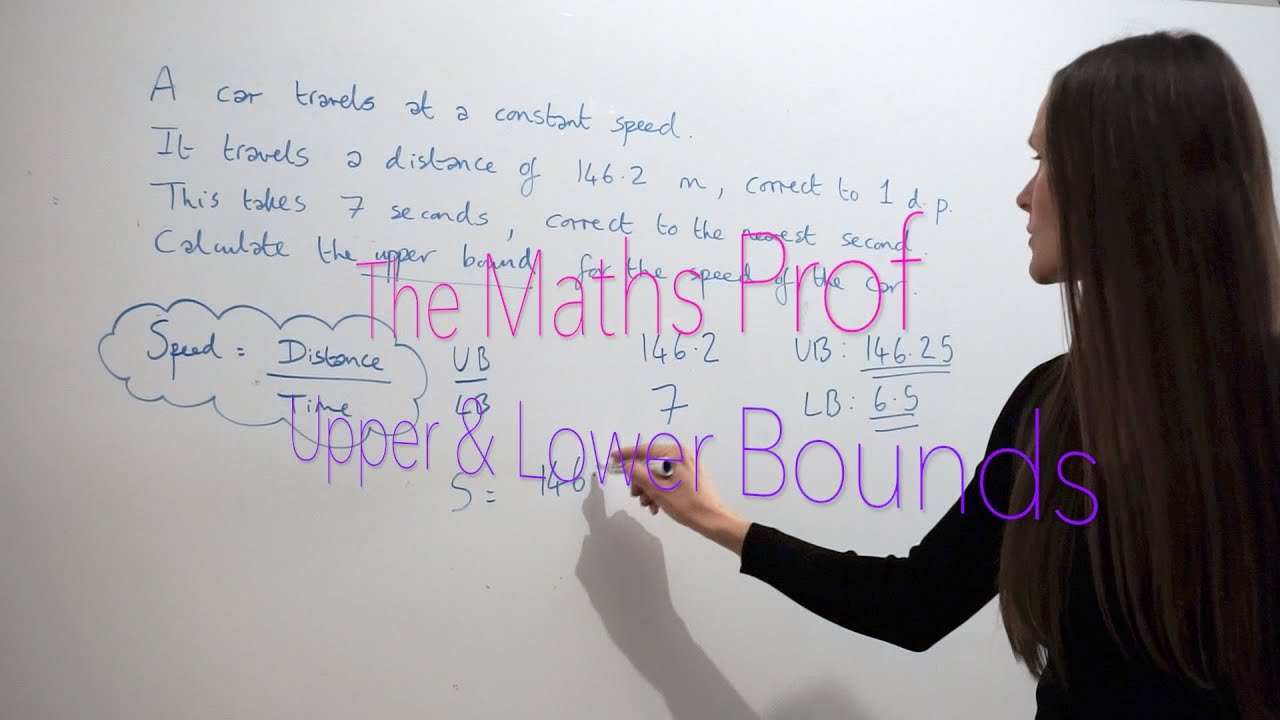 A car travels at a constant speed.
It travels a distance of 146.2 m, correct to 1 d.p.
This takes 7 seconds, correct to the nearest second.
Calculate the upper bound for the speed of the car.
The Maths Prof
Speed = Distance
Time
UB
LB
146.2
7
UB: 146.25
LB: 6.5
Upper & Lower Bounds
S = 146.